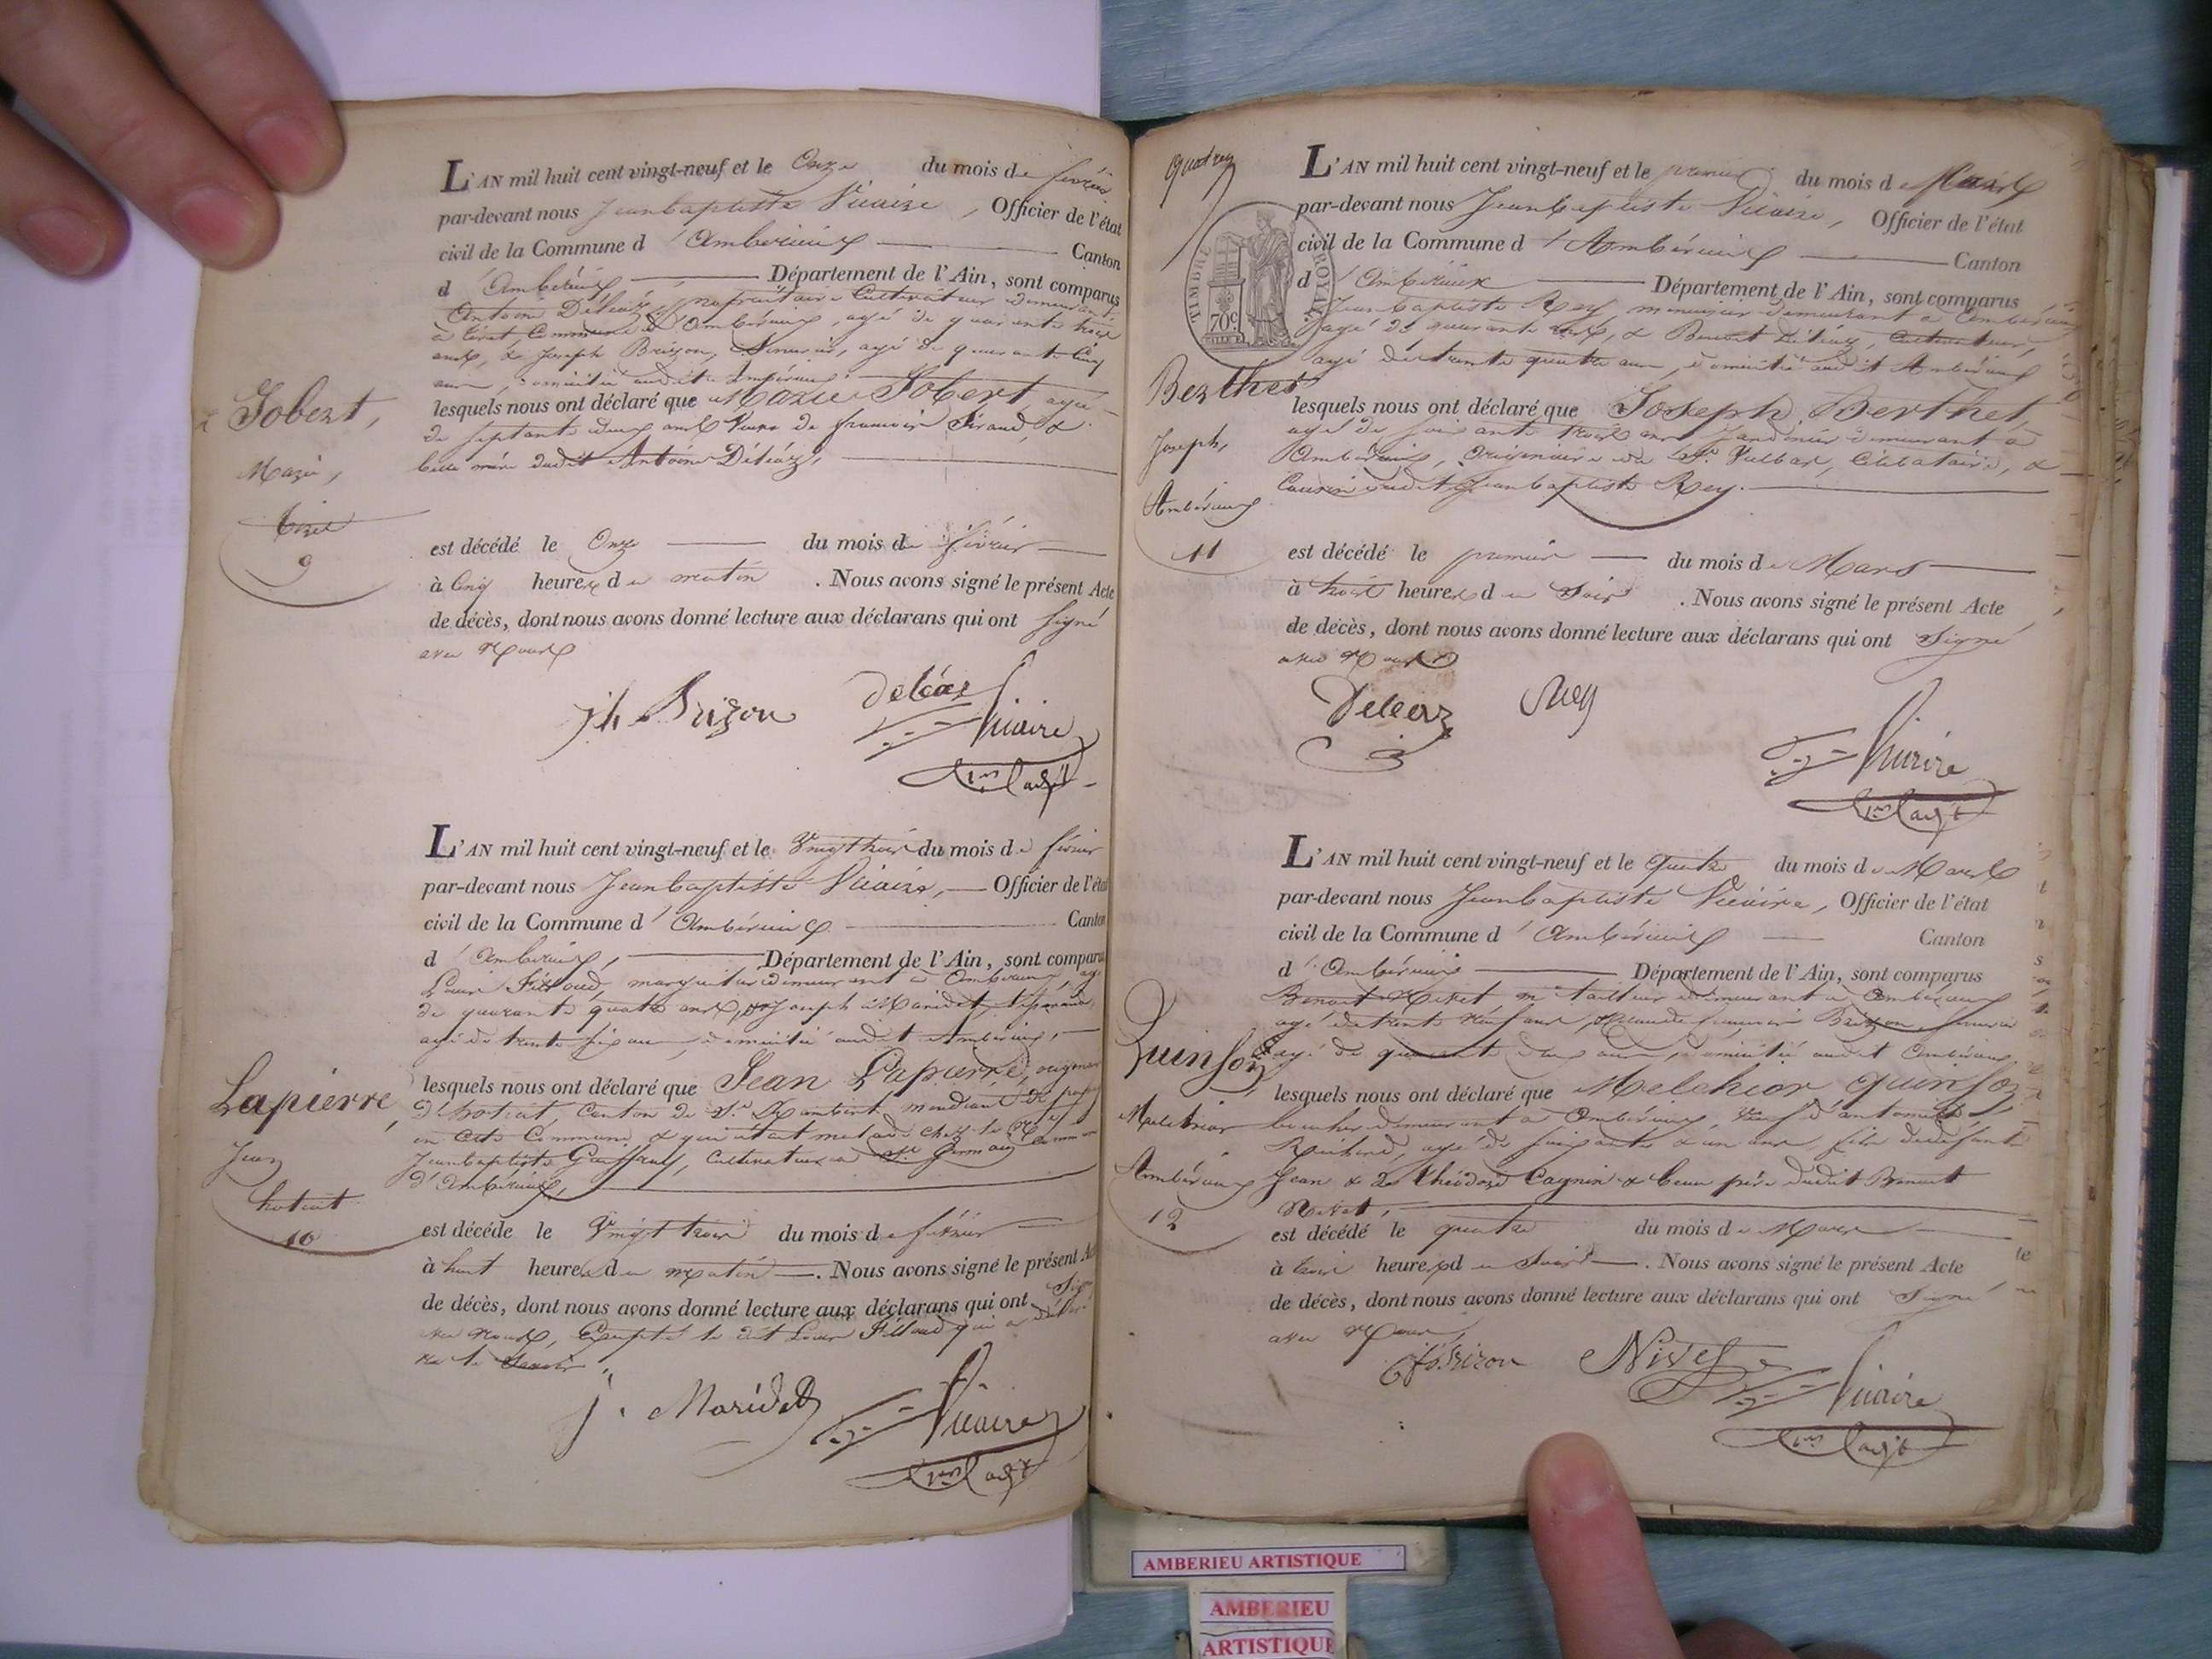 L'AN mil huit cent vingt-neuf et le Onze du mois de février
par-devant nous Jean baptiste Vicaire, Officier de l'état
civil de la Commune d'Ambérieux Canton
d'Ambérieux, Département de l'Ain, sont comparus
Antoine Déléaz, propriétaire Cultivateur demeurant
à Tiret, Commune d'Ambérieux, agé de quarante trois
ans, & Joseph Brizon, agé de quarante Cinq
ans, domicilié audit Ambérieux
Jobert,
lesquels nous ont déclaré que Marie Jobert agée
de septante deux ans Veuve de francois Siraud, &
Marie,
belle mère dudit Antoine Déléaz,
Tiret
9
est décédé le Onze du mois de février
à Cinq heures du matin. Nous avons signé le présent Acte
de décès, dont nous avons donné lecture aux déclarans qui ont signé
avec Nous
Jh Brizon deléaz Vicaire
L'AN mil huit cent vingt-neuf et le Vingt trois du mois de février
par-devant nous Jean baptiste Vicaire, Officier de l'état
civil de la Commune d'Ambérieux Canton
d'Ambérieux, Département de l'Ain, sont comparus
Louis demeurant à Ambérieux, agé
de quarante quatre ans, & Joseph Maridet
agé de trente six ans, domicilié audit Ambérieux,
Lapierre,
lesquels nous ont déclaré que Jean Lapierre,
Canton de St. Rambert, mendiant
en Cette Commune & qui était malade chez le
Jean
Jean baptiste Cultivateur à St. Germain Commune
d'Ambérieux,
10
est décédé le Vingt trois du mois de février
à huit heures du matin. Nous avons signé le présent Acte
de décès, dont nous avons donné lecture aux déclarans qui ont signé
avec Nous, Excepté le dit Louis qui a
ne le Savoir.
J. Maridet Vicaire
TIMBRE ROYAL
70c.
L'AN mil huit cent vingt-neuf et le premier du mois de Mars
par-devant nous Jean baptiste Vicaire, Officier de l'état
civil de la Commune d'Ambérieux Canton
d'Ambérieux Département de l'Ain, sont comparus
Jean baptiste Rey, menuisier demeurant à Ambérieux
agé de quarante ans, & Benoit Déléaz, Cultivateur,
agé de trente quatre ans, domicilié audit Ambérieux
Berthet
lesquels nous ont déclaré que Joseph Berthet,
agé de soixante trois ans Jardinier demeurant à
Joseph,
Ambérieux, Originaire de St. Vulbas, Célibataire, &
Cousin dudit Jean baptiste Rey.
Ambérieux
11
est décédé le premier du mois de Mars
à trois heures du Soir. Nous avons signé le présent Acte
de décès, dont nous avons donné lecture aux déclarans qui ont Signé
avec Nous
Deleaz Rey Vicaire
L'AN mil huit cent vingt-neuf et le quatre du mois de Mars
par-devant nous Jean baptiste Vicaire, Officier de l'état
civil de la Commune d'Ambérieux Canton
d'Ambérieux Département de l'Ain, sont comparus
Benoit Nivet md tailleur demeurant à Ambérieux
agé de trente neuf ans, & Claude francois Brizon,
agé de quarante deux ans, domicilié audit Ambérieux
Quinson
lesquels nous ont déclaré que Melchior Quinson,
Melchior
boucher demeurant à Ambérieux, Veuf d'antoinette
Richerd, agé de soixante & un ans, fils dedéfunts
Ambérieux
Jean & de théodore Cagnin & beau père dudit Benoit
Nivet,
12
est décédé le quatre du mois de Mars
à trois heures du Soir. Nous avons signé le présent Acte
de décès, dont nous avons donné lecture aux déclarans qui ont Signé
avec Nous
Brizon Nivet Vicaire
AMBERIEU ARTISTIQUE
AMBERIEU
ARTISTIQUE